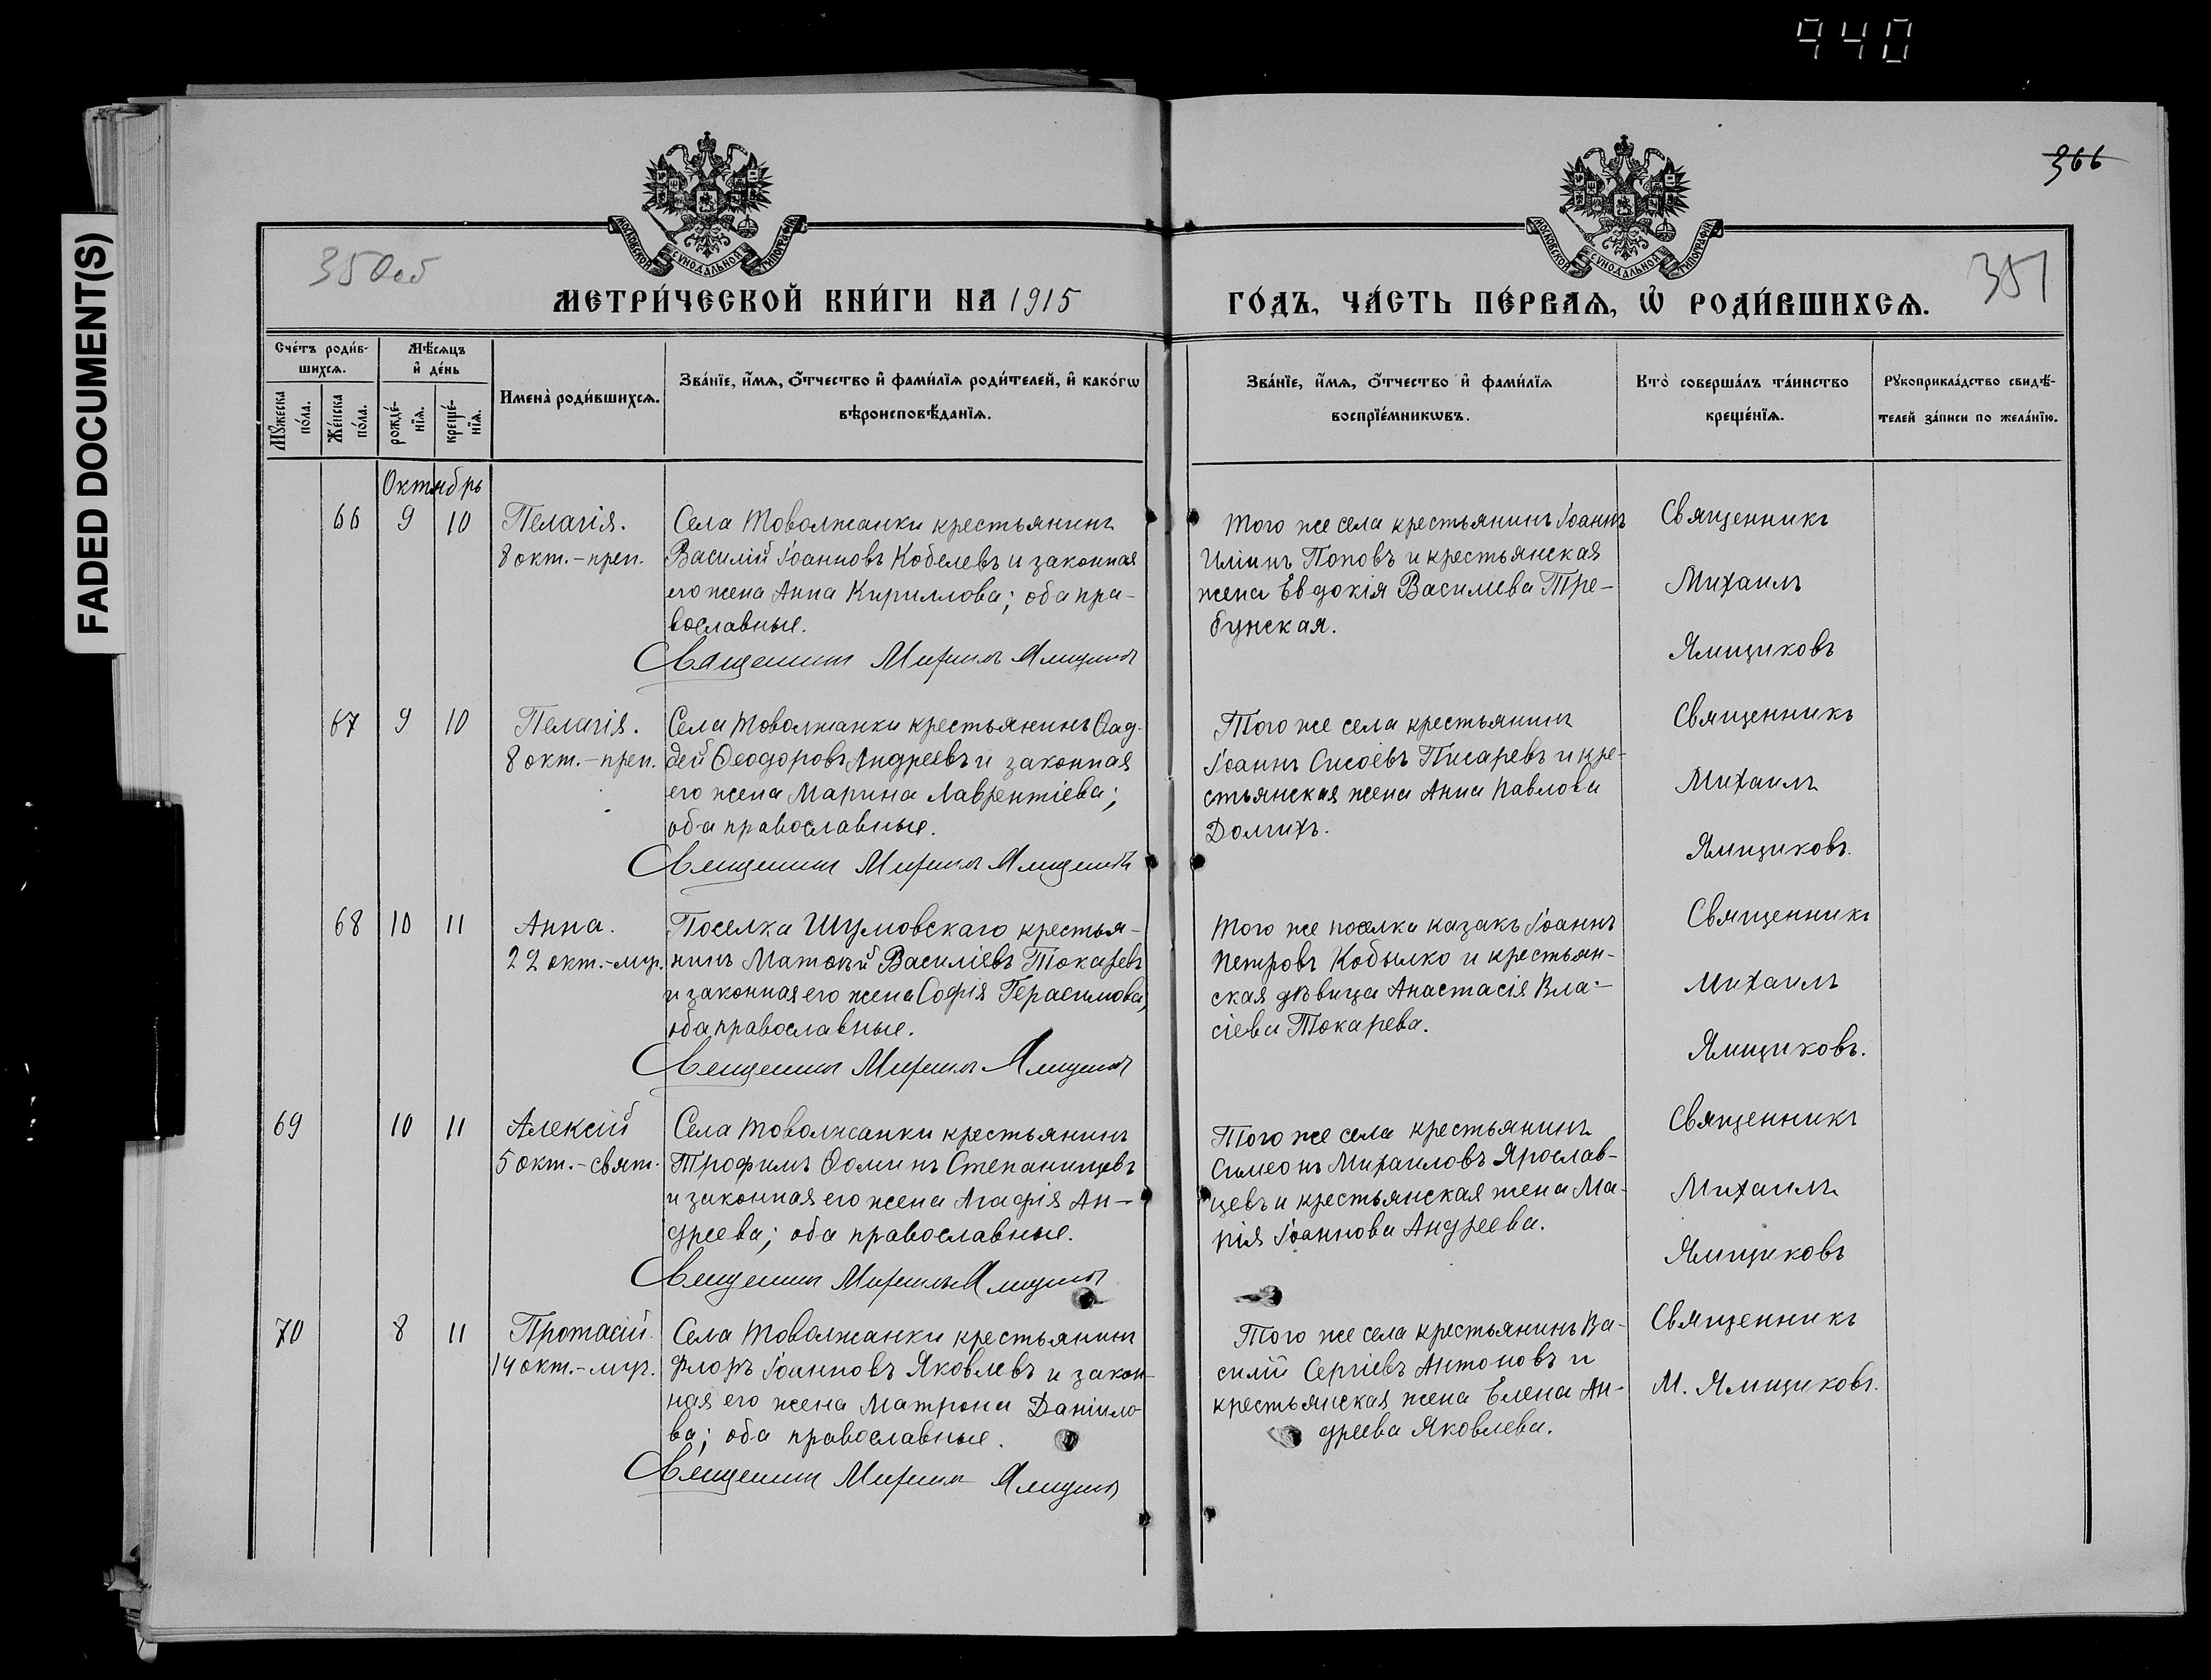 940
FADED DOCUMENT(S)
366
350об
351
МОСКОВСКОЙ СѴНОДАЛЬНОЙ ТИПОГРАФІИ
МОСКОВСКОЙ СѴНОДАЛЬНОЙ ТИПОГРАФІИ
МЕТРИ́ЧЕСКОЙ КНИ́ГИ НА 1915
ГО́ДЪ, ЧА́СТЬ ПЕ́РВАѦ, Ѡ҆ РОДИ́ВШИХСѦ.
Сче́тъ роди́в-
шихсѧ.
Мꙋ́жеска по́ла.
Же́нска по́ла.
Мѣ́сѧцъ
и҆ де́нь
рожде́-
нїѧ.
креще́-
нїѧ.
Имена̀ роди́вшихсѧ.
Зва́нїе, и҆́мѧ, ѻ҆́тчество и҆ фами́лїѧ роди́телей, и҆ како́гѡ
вѣроисповѣ́данїѧ.
Зва́нїе, и҆́мѧ, ѻ҆́тчество и҆ фами́лїѧ
воспрїе́мникѡвъ.
Кто̀ соверша́лъ та́инство
креще́нїѧ.
Рꙋкоприкла́дство свидѣ́-
телей за́писи по жела́нїю.
Октябрь
66 9 10 Пелагія.
8 окт.-преп.
Села Товолжанки крестьянинъ
Василій Іоанновъ Кобелевъ и законная
его жена Анна Кириллова; оба пра-
вославные.
Священникъ Михаилъ Ямщиковъ
Того же села крестьянинъ Іоаннъ
Иліинъ Поповъ и крестьянская
жена Евдокія Василиева Тре-
бунская.
Священникъ
Михаилъ
Ямщиковъ
67 9 10 Пелагія.
8 окт.-преп.
Села Товолжанки крестьянинъ Ѳад-
дей Ѳеодоровъ Андреевъ и законная
его жена Марина Лаврентіева;
оба православные.
Священникъ Михаилъ Ямщиковъ
Того же села крестьянинъ
Іоаннъ Сисоевъ Писаревъ и кре-
стьянская жена Анна Павлова
Долгихъ.
Священникъ
Михаилъ
Ямщиковъ.
68 10 11 Анна.
22 окт.-муч.
Поселка Шумовскаго крестья-
нинъ Матѳей Василіевъ Токаревъ
и законная его жена Софія Герасимова;
оба православные.
Священникъ Михаилъ Ямщиковъ
Того же поселка казакъ Іоаннъ
Петровъ Кобылко и крестьян-
ская дѣвица Анастасія Вла-
сіева Токарева.
Священникъ
Михаилъ
Ямщиковъ.
69 10 11 Алексій
5 окт.-свят.
Села Товолжанки крестьянинъ
Трофимъ Ѳоминъ Степанищевъ
и законная его жена Агафія Ан-
дреева; оба православные.
Священникъ Михаилъ Ямщиковъ
Того же села крестьянинъ
Симеонъ Михаиловъ Ярослав-
цевъ и крестьянская жена Ма-
рія Іоаннова Андреева.
Священникъ
Михаилъ
Ямщиковъ
70 8 11 Протасій.
14 окт.-муч.
Села Товолжанки крестьянинъ
Флоръ Іоанновъ Яковлевъ и закон-
ная его жена Матрона Даніило-
ва; оба православные.
Священникъ Михаилъ Ямщиковъ
Того же села крестьянинъ Ва-
силій Сергіевъ Антоновъ и
крестьянская жена Елена Ан-
дреева Яковлева.
Священникъ
М. Ямщиковъ.